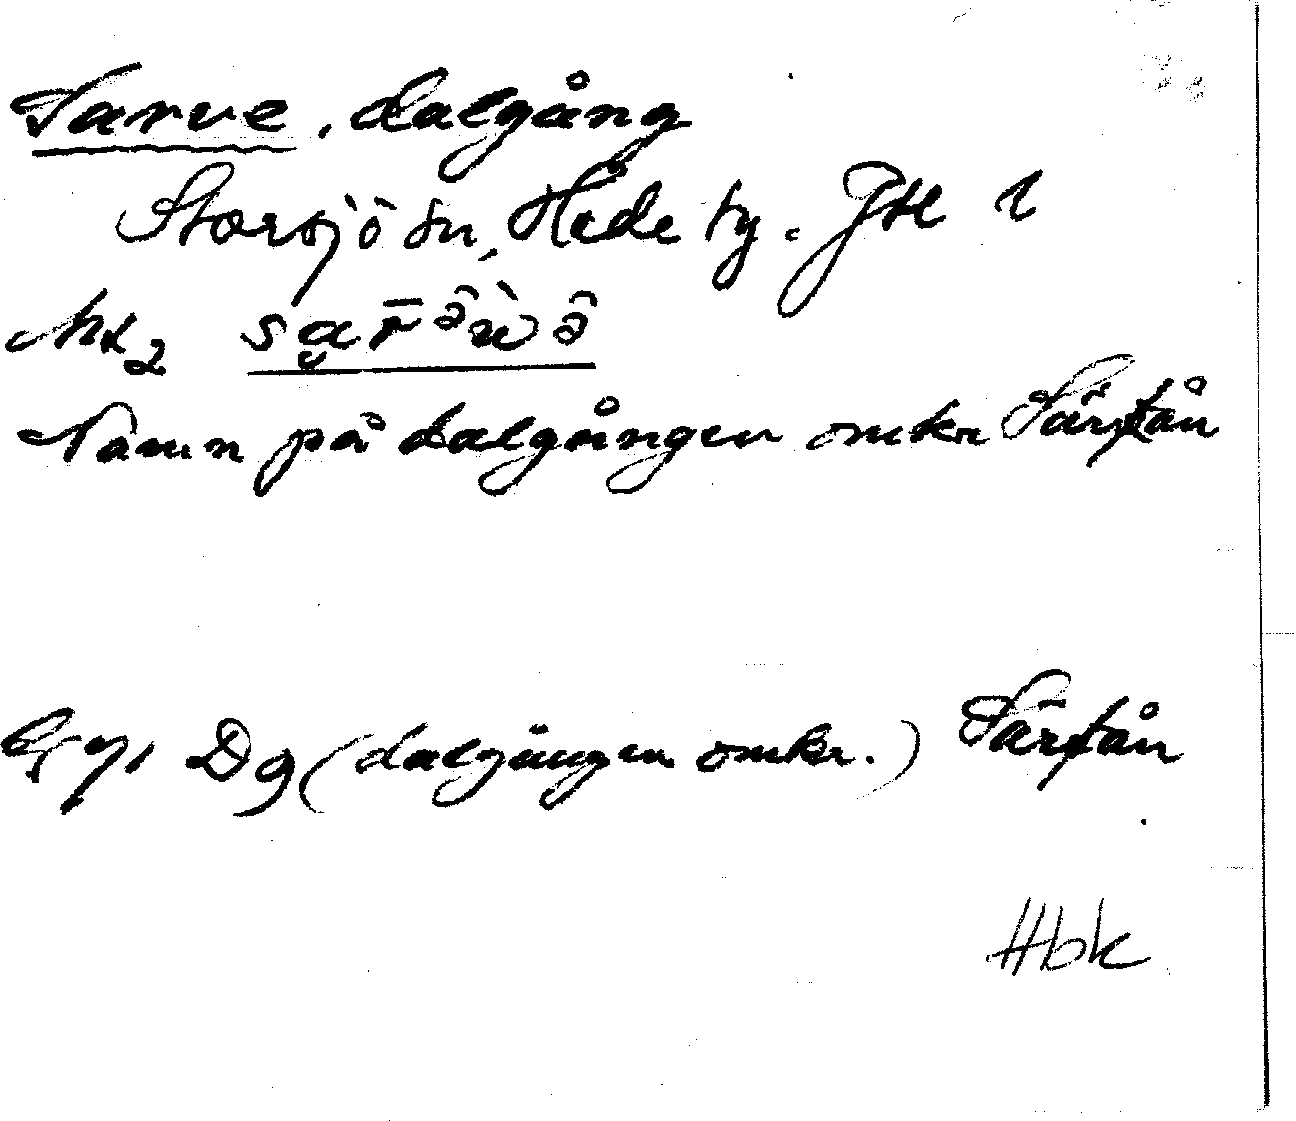 Sarve, dalgång
Storsjö sn, Hede tg. Jtl
sąr̄ə̂ẁə̂
Namn på dalgången omkr Särfån
Dg (dalgången omkr.) Särfån
Hbk